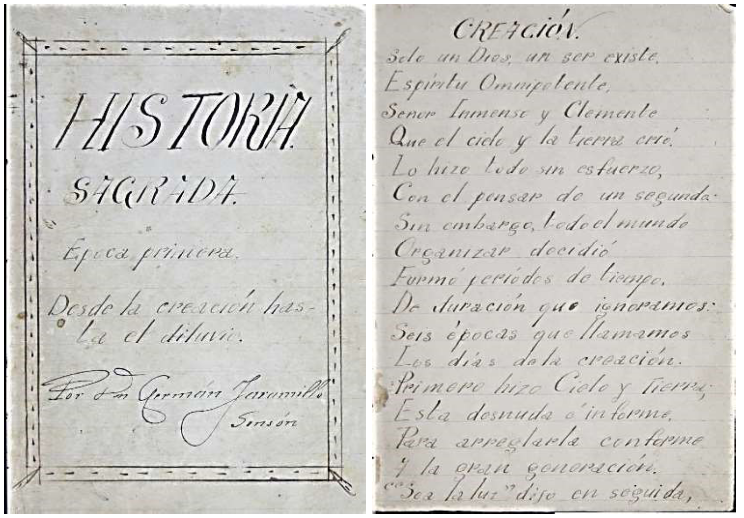 HISTORIA.
SAGRADA.
Época primera.
Desde la creación has-
ta el diluvio.
Por Dn Germán Jaramillo
Sonsón
CREACIÓN.
Solo un Dios, un ser existe,
Espíritu Omnipotente,
Señor Inmenso y Clemente
Que el cielo y la tierra crió.
Lo hizo todo sin esfuerzo,
Con el pensar de un segundo:
Sin embargo, todo el mundo
Organizar decidió
Formó períodos de tiempo.
De duración que ignoramos:
Seis épocas que llamamos
Los días de la creación.
Primero hizo Cielo y Tierra;
Esta desnuda é informe,
Para arreglarla conforme
Y la gran generación.
"Sea la luz" dijo en seguida,